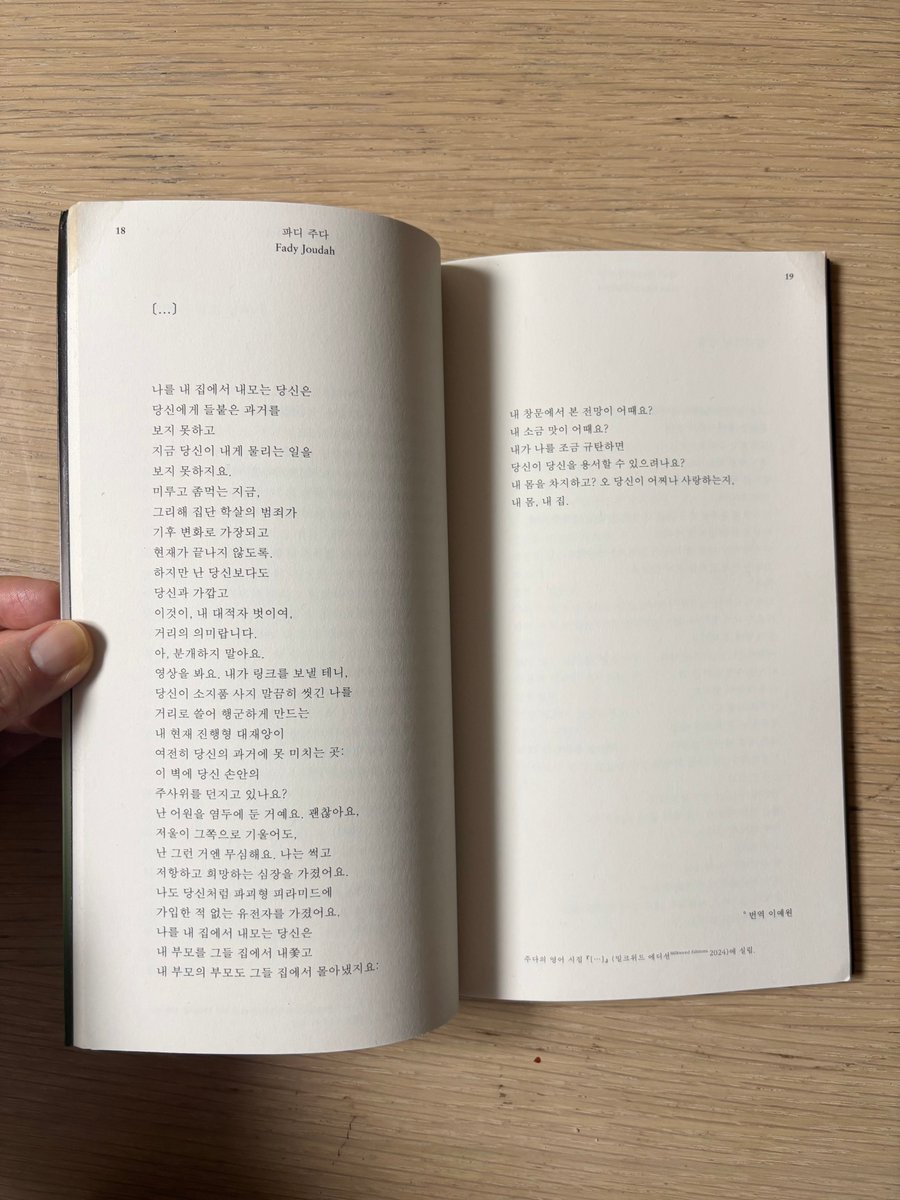 18
파디 주다
Fady Joudah
[…]
나를 내 집에서 내모는 당신은
당신에게 들붙은 과거를
보지 못하고
지금 당신이 내게 물리는 일을
보지 못하지요.
미루고 좀먹는 지금,
그리해 집단 학살의 범죄가
기후 변화로 가장되고
현재가 끝나지 않도록.
하지만 난 당신보다도
당신과 가깝고
이것이, 내 대적자 벗이여,
거리의 의미랍니다.
아, 분개하지 말아요.
영상을 봐요. 내가 링크를 보낼 테니,
당신이 소지품 사지 말끔히 씻긴 나를
거리로 쓸어 행군하게 만드는
내 현재 진행형 대재앙이
여전히 당신의 과거에 못 미치는 곳:
이 벽에 당신 손안의
주사위를 던지고 있나요?
난 어원을 염두에 둔 거예요. 괜찮아요,
저울이 그쪽으로 기울어도,
난 그런 거엔 무심해요. 나는 썩고
저항하고 희망하는 심장을 가졌어요.
나도 당신처럼 파괴형 피라미드에
가입한 적 없는 유전자를 가졌어요.
나를 내 집에서 내모는 당신은
내 부모를 그들 집에서 내쫓고
내 부모의 부모도 그들 집에서 몰아냈지요:
19
내 창문에서 본 전망이 어때요?
내 소금 맛이 어때요?
내가 나를 조금 규탄하면
당신이 당신을 용서할 수 있으려나요?
내 몸을 차지하고? 오 당신이 어찌나 사랑하는지,
내 몸, 내 집.
번역 이예원
주다의 영어 시집 『[…]』(밀크위드 에디션Milkweed Editions, 2024)에 실림.